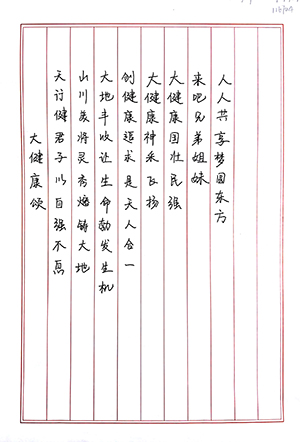 大健康颂
天行健君子以自强不息
山川美将灵秀熔铸大地
大地丰收让生命勃发生机
创健康追求是天人合一
大健康神采飞扬
大健康国壮民强
来吧兄弟姐妹
人人共享梦圆东方